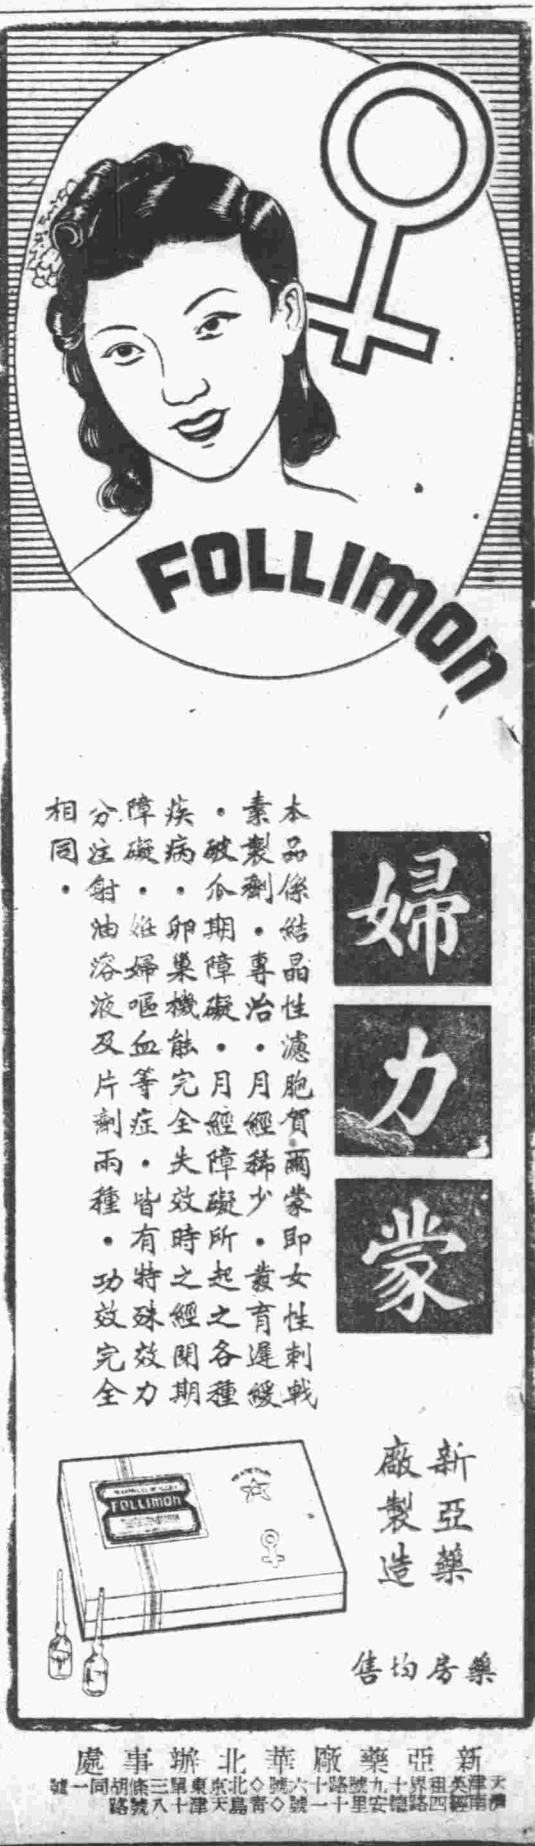 FOLLIMON
婦力蒙
本品係結晶性濾胞賀爾蒙即女性刺戟
素製劑・專治・月經稀少・發育遲緩
・破瓜期障礙・月經障礙所起之各種
疾病・卵巢機能完全失效時之經閉期
障礙・妊婦嘔血等症・皆有特殊效力
分注射油溶液及片劑兩種・功效完全
相同・
新亞藥
廠製造
藥房均售
FOLLIMON
新亞藥廠華北辦事處
天津英租界十九號路十六號◇北京東單三條胡同一號
濟南經四路德安里十一號◇青島天津路十八號